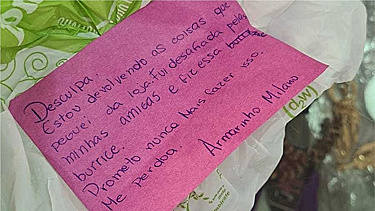 Desculpa
Estou devolvendo as coisas que
peguei da loja. Fui desafiada pelas
minhas amigas e fiz essa
burrice.
Prometo nunca mais fazer isso.
Me perdoa Armarinho Milano
(d,w)